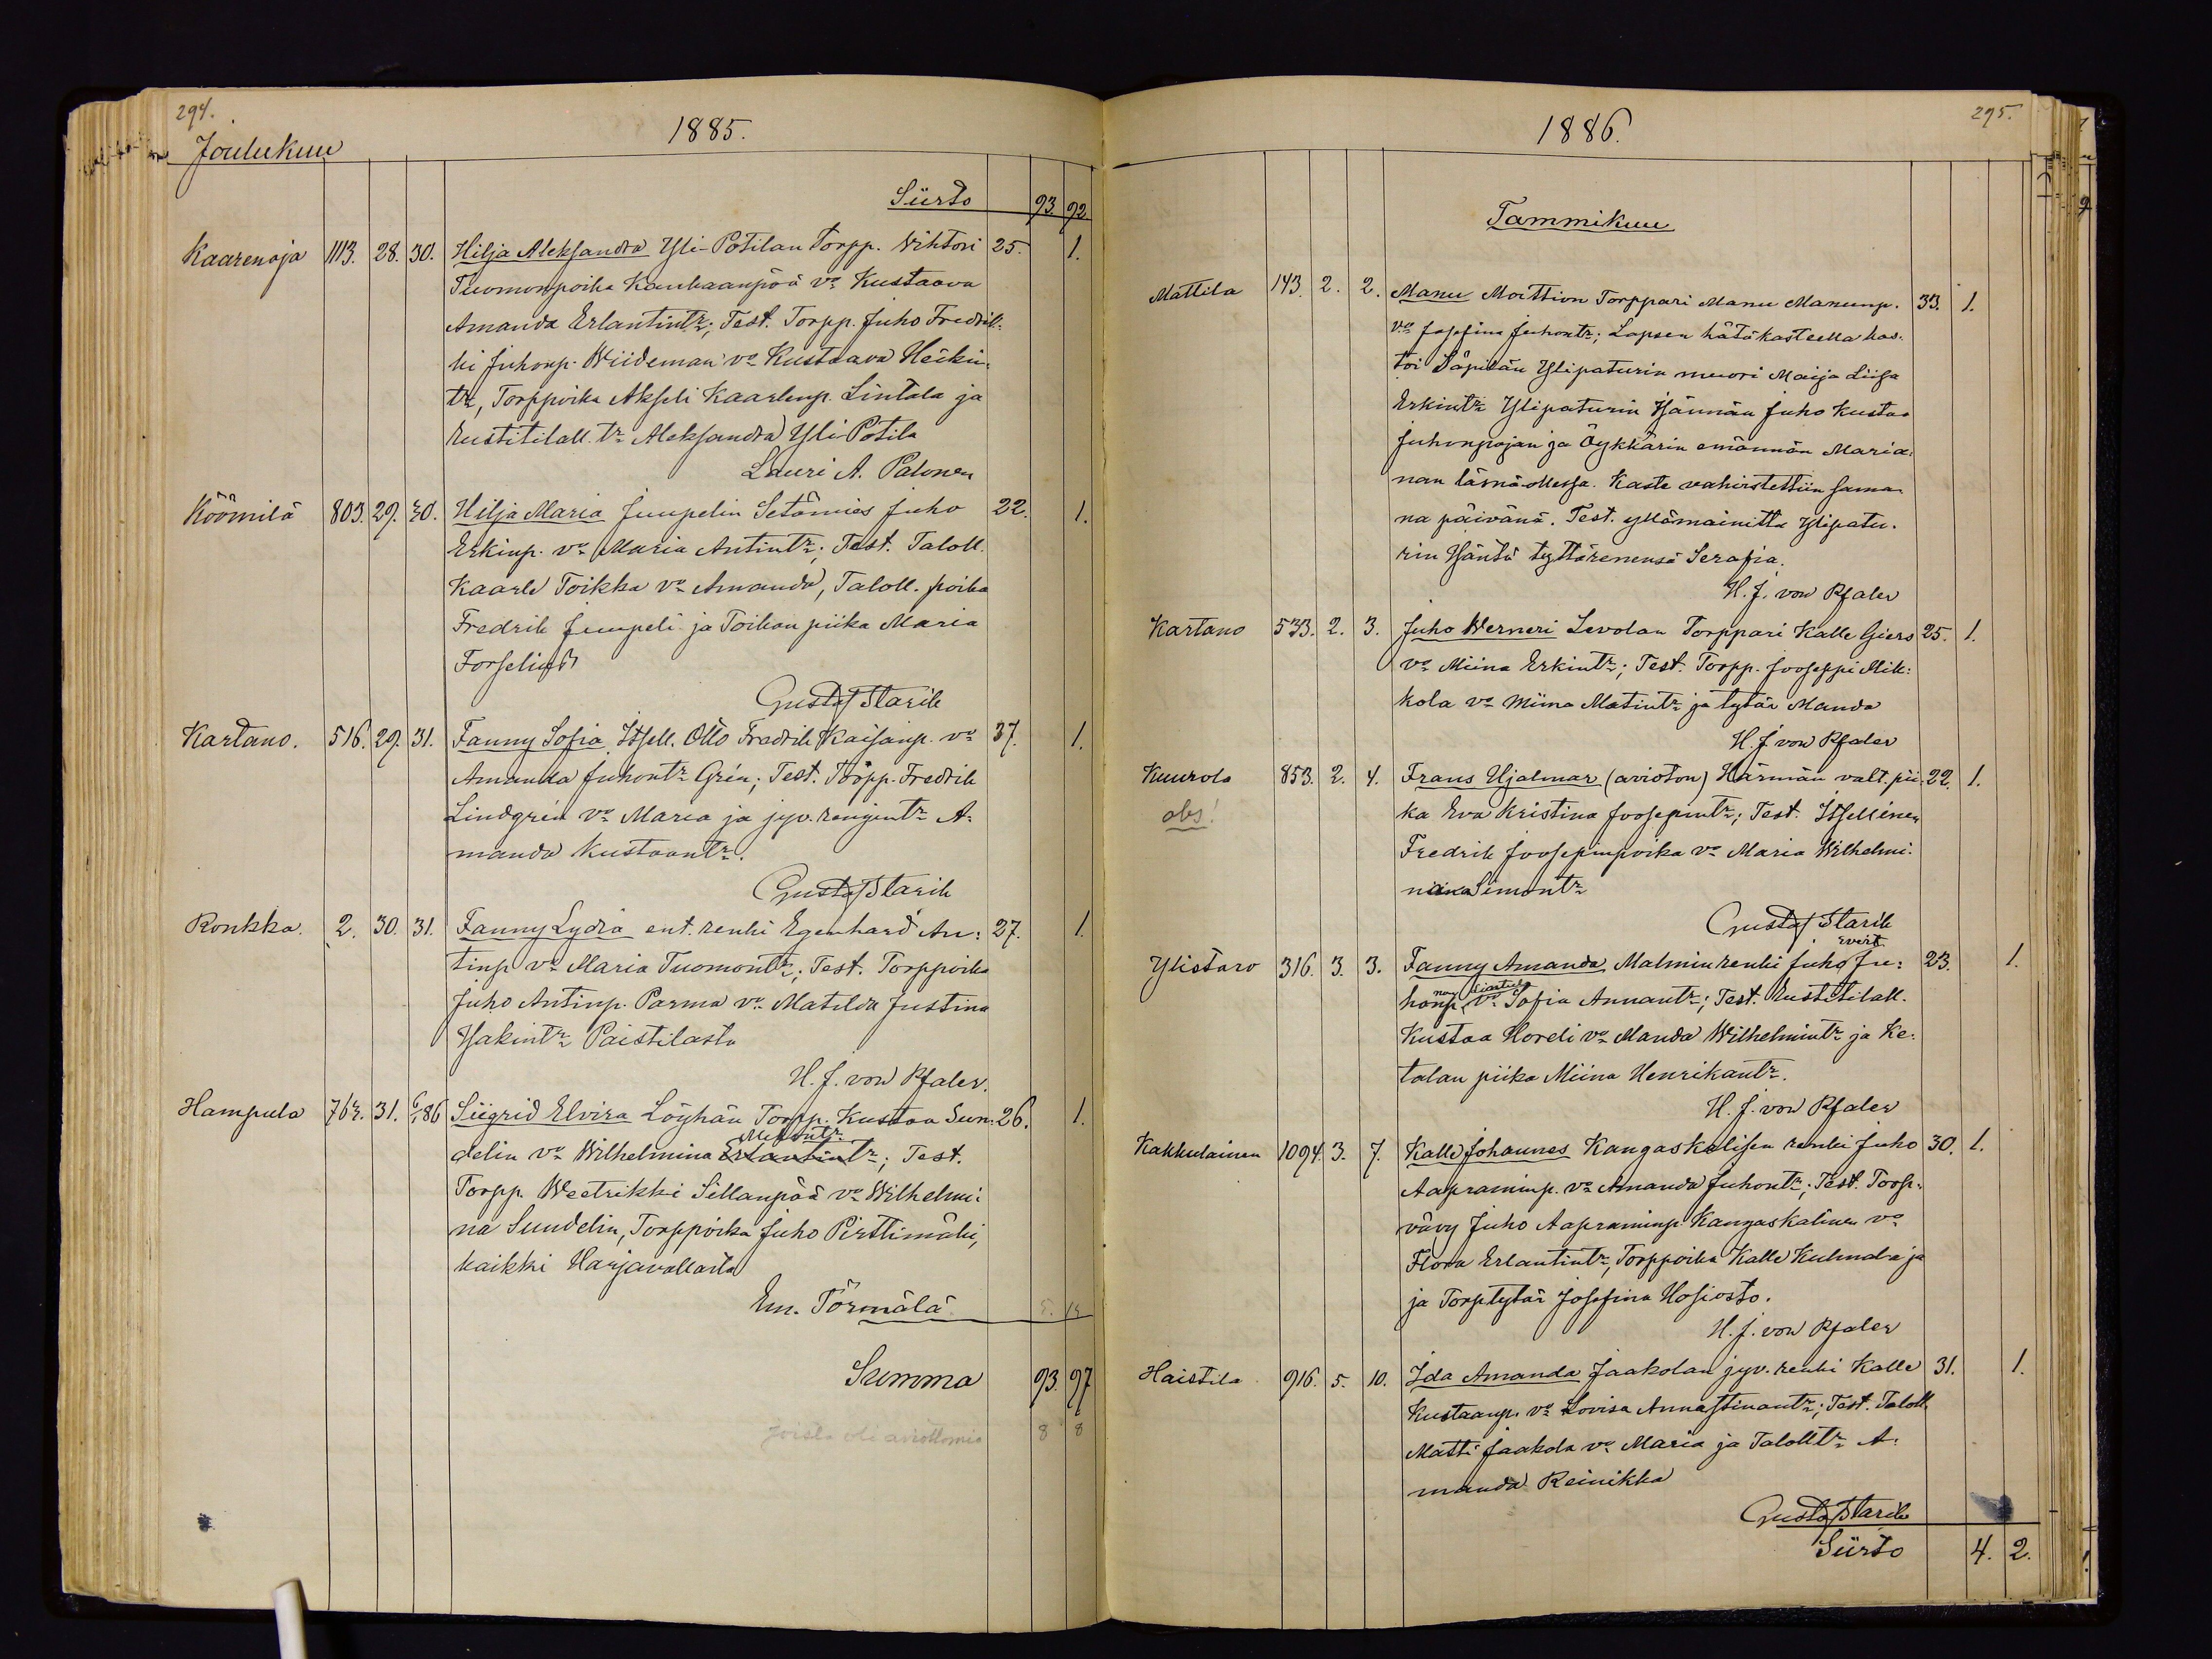 294.
Joulukuu
1885.
Siirto 93. 92
Kaarenoja 1113. 28. 30. Hilja Aleksandra Yli-Potilan Torpp. Wihtori 25. 1.
Tuomonpoika Kankaanpää vo Kustaava
Amanda Erlantintr; Test. Torpp. Juho Fredrik-
ki Juhonp. Wiideman vo Kustaava Heikin-
tr, Torppoika Akseli Kaarlenp. Lintala ja
Rustitilall. tr Aleksandra Yli-Potila
Lauri A. Palonen
Köömilä 803. 29. 30. Hilja Maria Juupelin Setämies Juho 22. 1.
Erkinp. vo Maria Antintr; Test. Taloll.
Kaarle Toikka vo Amanda, Taloll. poika
Fredrik Juupeli ja Toikan piika Maria
Forselius
Gustaf Starik
Kartano. 516. 29. 31. Fanny Sofia Itsell. Otto Fredrik Kaisanp. vo 37. 1.
Amanda Juhontr Grén; Test. Torpp. Fredrik
Lindgrén vo Maria ja jyv. rengintr A-
manda Kustaantr.
Gustaf Starik
Ronkka. 2. 30. 31. Fanny Lydia ent. renki Egenhard An- 27. 1.
tinp vo Maria Tuomontr; Test. Torppoika
Juho Antinp. Parma vo Matilda Justina
Isakintr Paistilasta
H. J. von Pfaler.
Hampula 763. 31. 6/1 86 Siigrid Elvira Löyhän Torpp. Kustaa Sun- 26. 1.
delin vo Wilhelmina Erlantintr; Test.
Torpp. Weetrikki Sillanpää vo Wilhelmi-
na Sundelin, Torppoika Juho Pirttimäki,
kaikki Harjavallasta
Em. Törmälä
Summa 93. 97
joista oli aviottomia 8 8
295.
1886.
Tammikuu
Mattila 143. 2. 2. Manu Moittion Torppari Manu Manunp. 33. 1.
vo Josefina Juhontr; Lapsen hätäkasteella kas-
toi Säpilän Ylipaturin muori Maija Liisa
Erkintr Ylipaturin Isännän Juho Kustaa
Juhonpojan ja Öykkärin emännän Maria-
nan läsnä ollessa. Kaste vahvistettiin sama-
na päivänä. Test. yllämainittu Ylipatu-
rin Isäntä tyttärenensä Serafia.
H. J. von Pfaler
Kartano 533. 2. 3. Juho Werneri Levolan Torppari Kalle Giers 25. 1.
vo Miina Erkintr; Test. Torpp. Jooseppi Mik-
kola vo Miina Matintr ja tytär Manda
H. J. von Pfaler
Kuurola 853. 2. 4. Frans Hjalmar (avioton) Härmän valt. pii- 22. 1.
obs! ka Eva Kristina Joosepintr; Test. Itsellinen
Fredrik Joosepinpoika vo Maria Wilhelmi-
na Simontr
Gustaf Starik
Evert
Ylistaro 316. 3. 3. Fanny Amanda Malmin renki Juho Ju- 23. 1.
honp. vo Sofia Annantr; Test. Rustitilall.
Kustaa Hordi vo Manda Wilhelmintr ja Ke-
talan piika Miina Henrikantr.
H. J. von Pfaler
Kakkulainen 1094. 3. 7. Kalle Johannes Kangaskalisen renki Juho 30. 1.
Aapraminp. vo Amanda Juhontr; Test. Torp-
vävy Juho Aapraminp. Kangaskalinen vo
Flora Erlantintr, Torppoika Kalle Kulmala ja
ja Torptytär Josefina Hosiosto.
H. J. von Pfaler
Haistila 916. 5. 10. Ida Amanda Jaakolan jyv. renki Kalle 31. 1.
Kustaanp. vo Lovisa Annastinantr; Test. Taloll.
Matti Jaakola vo Maria ja Talolltr A-
manda Reinikka
Gustaf Starik
Siirto 4. 2.